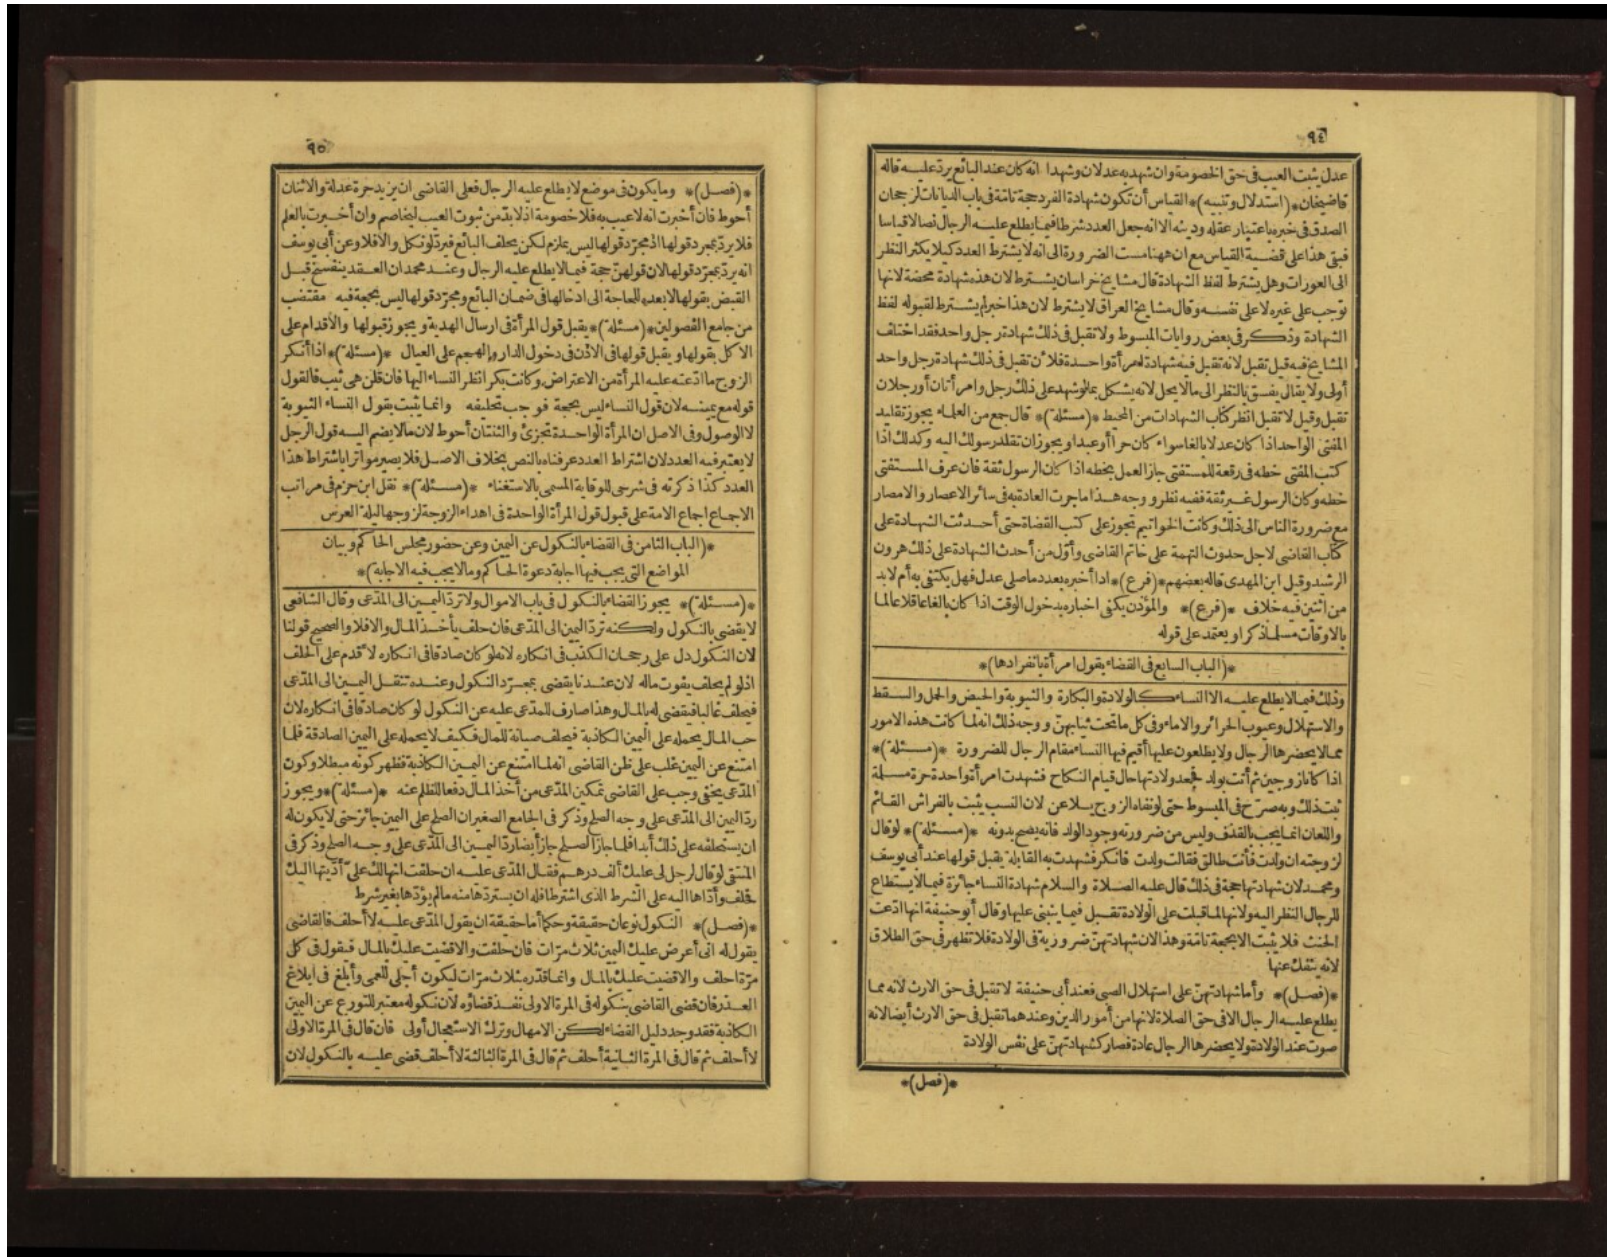 ٩٤
عدل يثبت العيب فى حق الخصومة وان شهد به عدلان وشهدا انه كان عند البائع يرد عليه قاله
قاضيخان *(استدلال وتنبيه)* القياس أن تكون شهادة الفرد حجة تامة فى باب الديانات لرجحان
الصدق فى خبره باعتبار عقله ودينه الا انه جعل العدد شرطا فيما يطلع عليه الرجال نصا لا قياسا
فبقى هذا على قضية القياس مع ان ههنا مست الضرورة الى انه لا يشترط العدد كيلا يكثر النظر
الى العورات وهل يشترط لفظ الشهادة قال مشايخ خراسان يشترط لان هذه شهادة محضة لانها
توجب على غيره لا على نفسه وقال مشايخ العراق لا يشترط لان هذا خبر لم يشترط لقبوله لفظ
الشهادة وذكر فى بعض روايات المبسوط ولا تقبل فى ذلك شهادة رجل واحد فقد اختلف
المشايخ فيه قيل تقبل لانه تقبل فيه شهادة امرأة واحدة فلأن تقبل فى ذلك شهادة رجل واحد
أولى ولا يقال يفسق بالنظر الى ما لا يحل لانه يشكل بما لو شهد على ذلك رجل وامرأتان أو رجلان
تقبل وقيل لا تقبل انظر كتاب الشهادات من المحيط *(مسئلة)* قال جمع من العلماء يجوز تقليد
المفتى الواحد اذا كان عدلا بالغا سواء كان حرا أو عبدا ويجوز ان تقلد رسولك اليه وكذلك اذا
كتب المفتى خطه فى رقعة للمستفتى جاز العمل بخطه اذا كان الرسول ثقة فان عرف المستفتى
خطه وكان الرسول غير ثقة ففيه نظر ووجه هذا ما جرت العادة به فى سائر الاعصار والامصار
مع ضرورة الناس الى ذلك وكانت الخواتيم تجوز على كتب القضاة حتى أحدثت الشهادة على
كتاب القاضى لاجل حدوث التهمة على خاتم القاضى وأول من أحدث الشهادة على ذلك هرون
الرشيد وقيل ابن المهدى قاله بعضهم *(فرع)* اذا أخبره بعدد ما صلى عدل فهل يكتفى به أم لا بد
من اثنين فيه خلاف *(فرع)* والمؤذن يكفى اخباره بدخول الوقت اذا كان بالغا عاقلا عالما
بالاوقات مسلما ذكرا ويعتمد على قوله
*(الباب السابع فى القضاء بقول امرأة بانفرادها)*
وذلك فيما لا يطلع عليه الا النساء كالولادة والبكارة والثيوبة والحيض والحمل والسقط
والاستهلال وعيوب الحرائر والاماء وفى كل ما تحت ثيابهن ووجه ذلك انه لما كانت هذه الامور
مما لا يحضرها الرجال ولا يطلعون عليها أقيم فيها النساء مقام الرجال للضرورة *(مسئلة)*
اذا كانا زوجين ثم أتت بولد فجحد ولادتها حال قيام النكاح فشهدت امرأة واحدة حرة مسلمة
ثبت ذلك وبه صرح فى المبسوط حتى لو نفاه الزوج يلاعن لان النسب يثبت بالفراش القائم
واللعان انما يجب بالقذف وليس من ضرورته وجود الولد فانه يصح بدونه *(مسئلة)* لو قال
لزوجته ان ولدت فأنت طالق فقالت ولدت فانكر فشهدت به القابلة يقبل قولها عند أبى يوسف
ومحمد لان شهادتها حجة فى ذلك قال عليه الصلاة والسلام شهادة النساء جائزة فيما لا يستطاع
للرجال النظر اليه ولانها لما قبلت على الولادة تقبل فيما يبتنى عليها وقال أبو حنيفة انها ادعت
الحنث فلا يثبت الا بحجة تامة وهذا لان شهادتهن ضرورية فى الولادة فلا تظهر فى حق الطلاق
لانه ينفك عنها
*(فصل)* وأما شهادتهن على استهلال الصبى فعند أبى حنيفة لا تقبل فى حق الارث لانه مما
يطلع عليه الرجال الا فى حق الصلاة لانها من أمور الدين وعندهما تقبل فى حق الارث أيضا لانه
صوت عند الولادة ولا يحضرها الرجال عادة فصار كشهادتهن على نفس الولادة
*(فصل)*
٩٥
*(فصل)* وما يكون فى موضع لا يطلع عليه الرجال فعلى القاضى ان يريد حرة عدلة والاثنتان
أحوط فان أخبرت انه لا عيب به فلا خصومة اذ لا بد من ثبوت العيب ليخاصم وان أخبرت بالعلم
فلا يرد بمجرد قولها اذ مجرد قولها ليس بملزم لكن يحلف البائع فيرد لو نكل والا فلا وعن أبى يوسف
انه يرد بمجرد قولها لان قولهن حجة فيما لا يطلع عليه الرجال وعند محمد ان العقد ينفسخ قبل
القبض بقولها لا بعده للحاجة الى ادخالها فى ضمان البائع ومجرد قولها ليس بحجة فيه مقتضب
من جامع الفصولين *(مسئلة)* يقبل قول المرأة فى ارسال الهدية ويجوز قبولها والاقدام على
الاكل بقولها ويقبل قولها فى الاذن فى دخول الدار والهجم على العيال *(مسئلة)* اذا أنكر
الزوج ما ادعته عليه المرأة من الاعتراض وكانت بكرا نظر النساء اليها فان قلن هى ثيب فالقول
قوله مع يمينه لان قول النساء ليس بحجة فوجب تحليفه وانما يثبت بقول النساء الثيوبة
لا الوصول وفى الاصل ان المرأة الواحدة تجزئ والثنتان أحوط لان ما لا يضم اليه قول الرجل
لا يعتبر فيه العدد لان اشتراط العدد عرفناه بالنص بخلاف الاصل فلا يصير متواترا باشتراط هذا
العدد كذا ذكرته فى شرحى للوقاية المسمى بالاستغناء *(مسئلة)* نقل ابن حزم فى مراتب
الاجماع اجماع الامة على قبول قول المرأة الواحدة فى اهداء الزوجة لزوجها ليلة العرس
*(الباب الثامن فى القضاء بالنكول عن اليمين وعن حضور مجلس الحاكم وبيان
المواضع التى يجب فيها اجابة دعوة الحاكم وما لا يجب فيه الاجابة)*
*(مسئلة)* يجوز القضاء بالنكول فى باب الاموال ولا ترد اليمين الى المدعى وقال الشافعى
لا يقضى بالنكول ولكنه ترد اليمين الى المدعى فان حلف يأخذ المال والا فلا والصحيح قولنا
لان النكول دل على رجحان الكذب فى انكاره لانه لو كان صادقا فى انكاره لأقدم على الحلف
اذ لو لم يحلف يفوت ماله لان عندنا يقضى بمجرد النكول وعنده تنتقل اليمين الى المدعى
فيحلف غالبا فيقضى له بالمال وهذا صارف للمدعى عليه عن النكول لو كان صادقا فى انكاره لان
حب المال يحمله على اليمين الكاذبة فيحلف صيانة للمال فكيف لا يحمله على اليمين الصادقة فلما
امتنع عن اليمين غلب على ظن القاضى انه لما امتنع عن اليمين الكاذبة فظهر كونه مبطلا وكون
المدعى محقا وجب على القاضى تمكين المدعى من أخذ المال دفعا للظلم عنه *(مسئلة)* ويجوز
رد اليمين الى المدعى على وجه الصلح وذكر فى الجامع الصغير ان الصلح على اليمين جائز حتى لا يكون له
ان يستحلفه على ذلك أبدا فلما جاز الصلح جاز أيضا رد اليمين الى المدعى على وجه الصلح وذكر فى
المنتقى لو قال لرجل لى عليك ألف درهم فقال المدعى عليه ان حلفت انها لك علىّ أديتها اليك
فحلف وأداها اليه على الشرط الذى اشترطا فله ان يستردها منه ما لم يؤدها بغير شرط
*(فصل)* النكول نوعان حقيقة وحكما أما حقيقة ان يقول المدعى عليه لا أحلف فالقاضى
يقول له انى أعرض عليك اليمين ثلاث مرات فان حلفت والا قضيت عليك بالمال فيقول فى كل
مرة احلف والا قضيت عليك بالمال وانما قدره بثلاث مرات ليكون أجلى للعمى وأبلغ فى ابلاغ
العذر فان قضى القاضى بنكوله فى المرة الاولى نفذ قضاؤه لان نكوله معتبر للتورع عن اليمين
الكاذبة فقد وجد دليل القضاء لكن الامهال وترك الاستعجال أولى فان قال فى المرة الاولى
لا أحلف ثم قال فى المرة الثانية أحلف ثم قال فى المرة الثالثة لا أحلف قضى عليه بالنكول لان